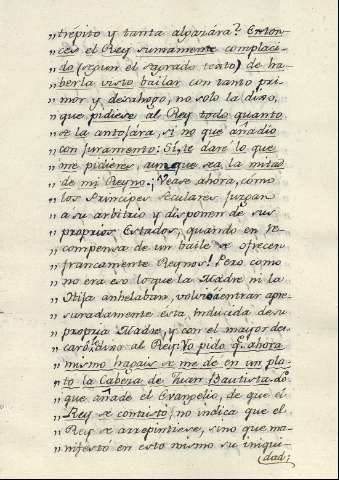 „ trépito y tanta algazara? Enton-
„ ces el Rey sumamente complaci-
„ do (segun el sagrado texto) de ha-
„ berla visto bailar con tanto pri-
„ mor y desahogo, no solo la dixo,
„ que pidiese al Rey todo quanto
„ se la antojára, si no que añadio
„ con juramento: Si, te daré lo que
„ me pidieres, aunque sea la mitad
„ de mi Reyno. ¡Vease ahora, cómo
„ los Principes seculares juzgan
„ a su arbitrio y disponen de sus
„ proprios Estados, quando en re-
„ compensa de un baile se ofrecen
„ francamente Reynos! Pero como
„ no era eso lo que la Madre ni la
„ Hija anhelaban, volvió á entrar apre-
„ suradamente esta, inducida de su
„ propria Madre, y con el mayor des-
„ caro, dixo al Rey: Yo pido q.e ahora
„ mismo hagais se me dé en un pla-
„ to la Cabeza de Juan Bautista. Lo
„ que añade el Evangelio, de que el
„ Rey se contristó, no indica que el
„ Rey se arrepintiese, sino que ma-
„ nifestó en esto mismo su iniqui-
dad;